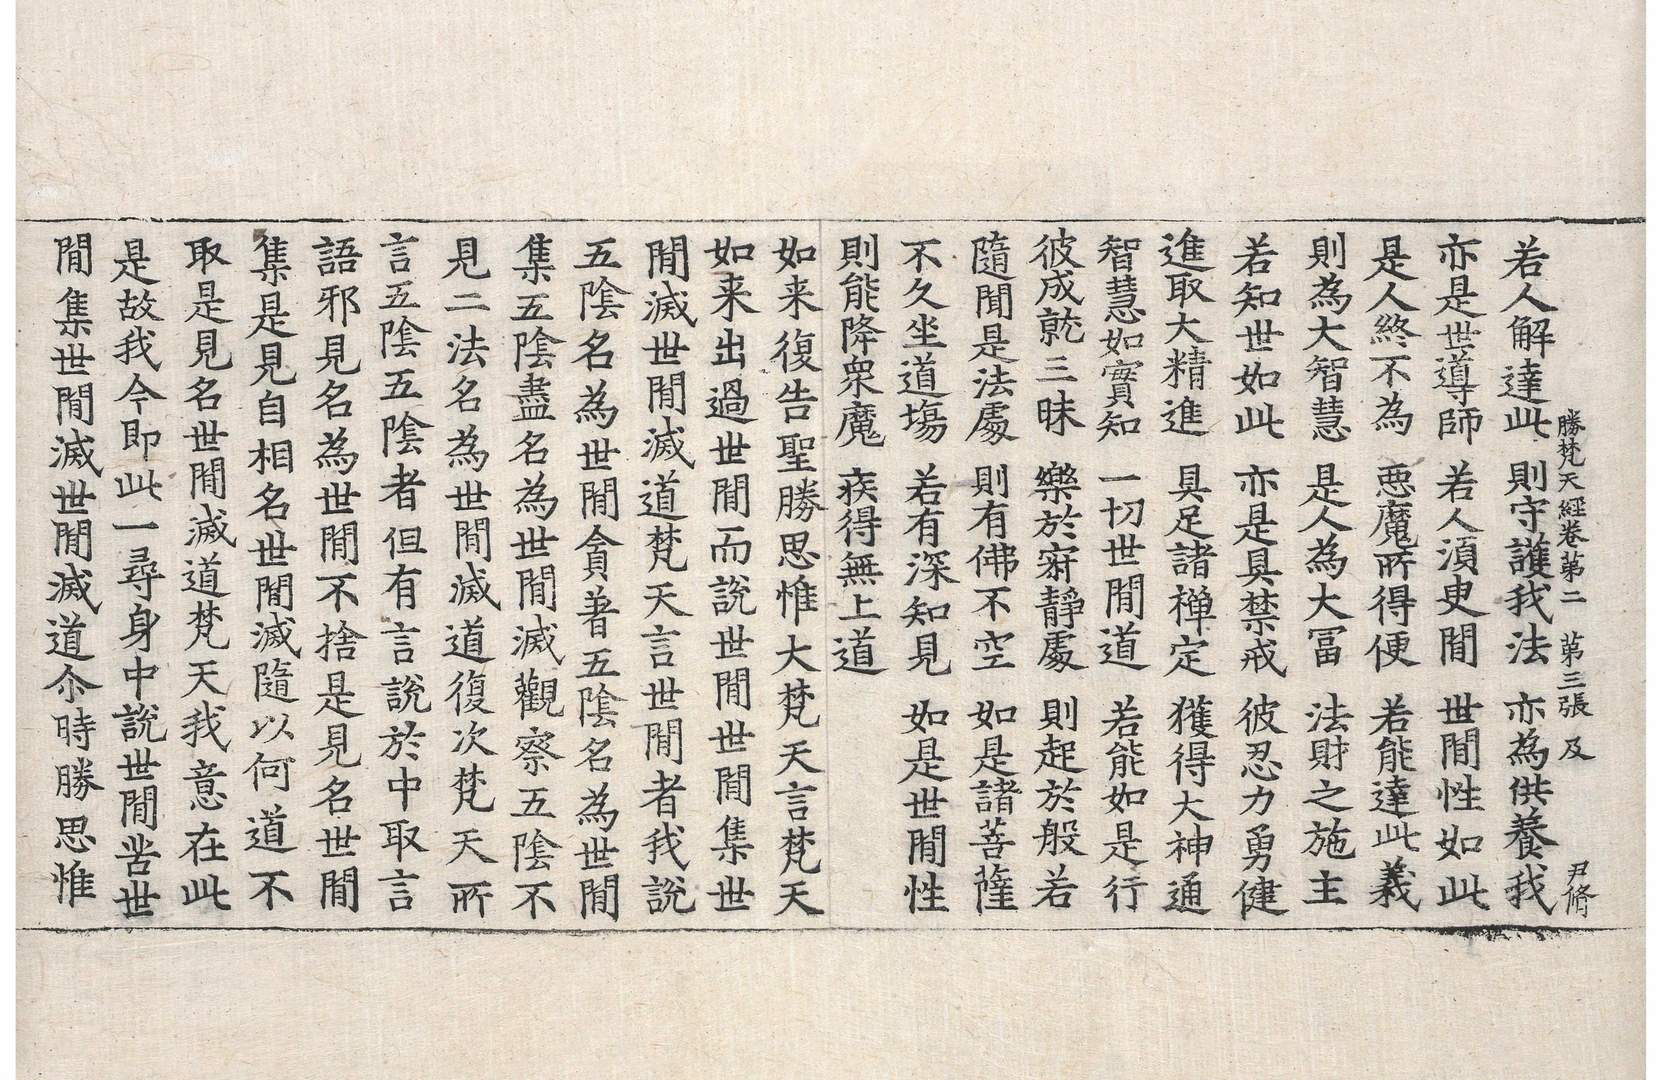 勝梵天經卷第二 第三張 及 尹脩
若人解達此 則守護我法 亦為供養我
亦是世導師 若人湏臾閒 世閒性如此
是人終不為 惡魔所得便 若能達此義
則為大智慧 是人為大冨 法財之施主
若知世如此 亦是具禁戒 彼忍力勇健
進取大精進 具足諸禪定 獲得大神通
智慧如實知 一切世閒道 若能如是行
彼成就三昧 樂於寂靜處 則起於般若
隨聞是法處 則有佛不空 如是諸菩薩
不久坐道場 若有深知見 如是世閒性
則能降衆魔 疾得無上道
如来復告聖勝思惟大梵天言梵天
如来出過世閒而說世閒世閒集世
閒滅世閒滅道梵天言世閒者我說
五陰名為世閒貪著五陰名為世閒
集五陰盡名為世閒滅觀察五陰不
見二法名為世閒滅道復次梵天所
言五陰五陰者但有言說於中取言
語邪見名為世閒不捨是見名世閒
集是見自相名世閒滅隨以何道不
取是見名世閒滅道梵天我意在此
是故我今即此一尋身中說世閒苦世
閒集世閒滅世閒滅道尒時勝思惟